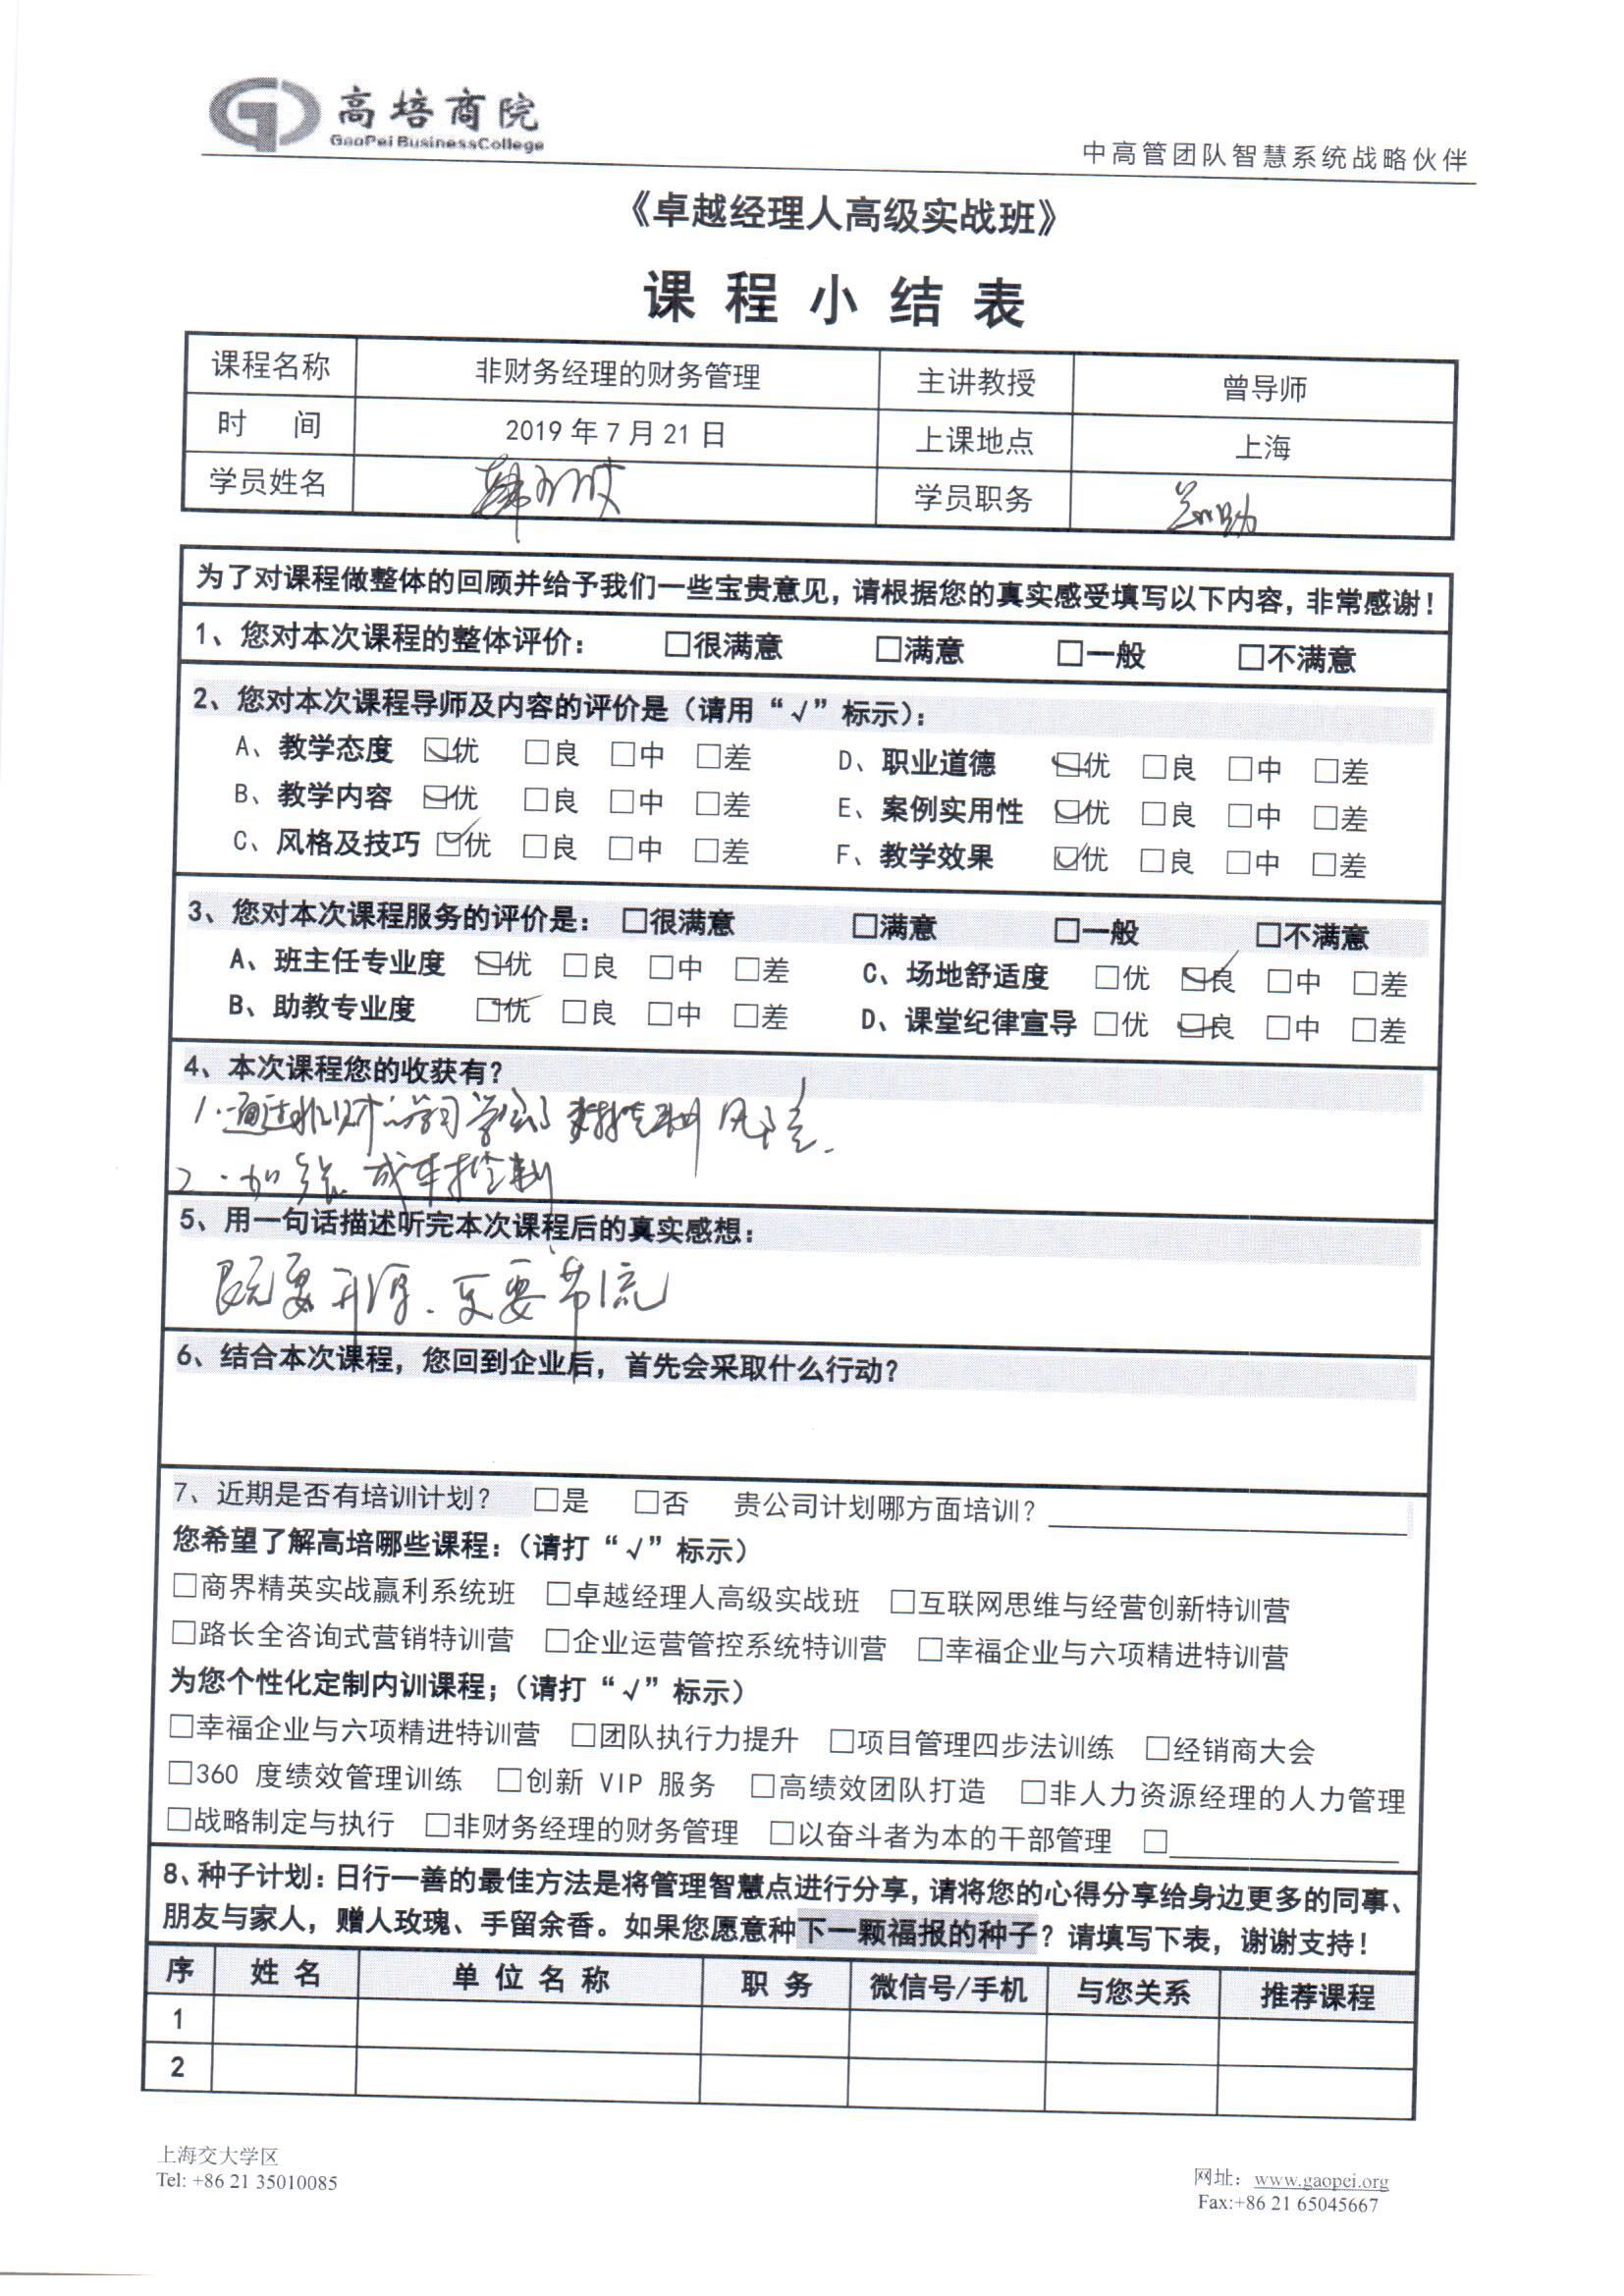 高培商院
GaoPei BusinessCollege
中高管团队智慧系统战略伙伴
《卓越经理人高级实战班》
课程小结表
课程名称 非财务经理的财务管理 主讲教授 曾导师
时 间 2019年7月21日 上课地点 上海
学员姓名 学员职务 总助
为了对课程做整体的回顾并给予我们一些宝贵意见，请根据您的真实感受填写以下内容，非常感谢！
1、您对本次课程的整体评价： □很满意 □满意 □一般 □不满意
2、您对本次课程导师及内容的评价是（请用“√”标示）：
A、教学态度 ☑优 □良 □中 □差 D、职业道德 ☑优 □良 □中 □差
B、教学内容 ☑优 □良 □中 □差 E、案例实用性 ☑优 □良 □中 □差
C、风格及技巧 ☑优 □良 □中 □差 F、教学效果 ☑优 □良 □中 □差
3、您对本次课程服务的评价是： □很满意 □满意 □一般 □不满意
A、班主任专业度 ☑优 □良 □中 □差 C、场地舒适度 □优 ☑良 □中 □差
B、助教专业度 ☑优 □良 □中 □差 D、课堂纪律宣导 □优 ☑良 □中 □差
4、本次课程您的收获有？
1.通过非财的学习学会了控制风险.
2.加强成本控制
5、用一句话描述听完本次课程后的真实感想：
既要开源.更要节流
6、结合本次课程，您回到企业后，首先会采取什么行动？
7、近期是否有培训计划？ □是 □否 贵公司计划哪方面培训？
您希望了解高培哪些课程：（请打“√”标示）
□商界精英实战赢利系统班 □卓越经理人高级实战班 □互联网思维与经营创新特训营
□路长全咨询式营销特训营 □企业运营管控系统特训营 □幸福企业与六项精进特训营
为您个性化定制内训课程；（请打“√”标示）
□幸福企业与六项精进特训营 □团队执行力提升 □项目管理四步法训练 □经销商大会
□360 度绩效管理训练 □创新 VIP 服务 □高绩效团队打造 □非人力资源经理的人力管理
□战略制定与执行 □非财务经理的财务管理 □以奋斗者为本的干部管理 □
8、种子计划：日行一善的最佳方法是将管理智慧点进行分享，请将您的心得分享给身边更多的同事、
朋友与家人，赠人玫瑰、手留余香。如果您愿意种下一颗福报的种子？请填写下表，谢谢支持！
序 姓名 单位名称 职务 微信号/手机 与您关系 推荐课程
1
2
上海交大学区
Tel: +86 21 35010085
网址：www.gaopei.org
Fax:+86 21 65045667